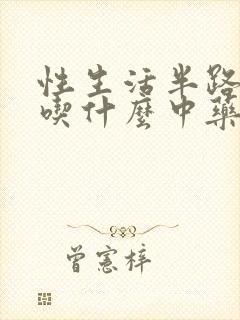 性生活半路
喫什麼中藥
曾憲梓